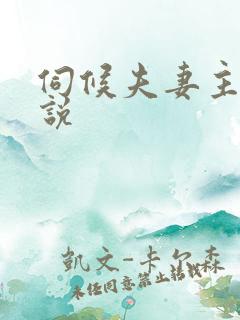 伺候夫妻主
說
凱文-卡尔森
未经同意禁止转载